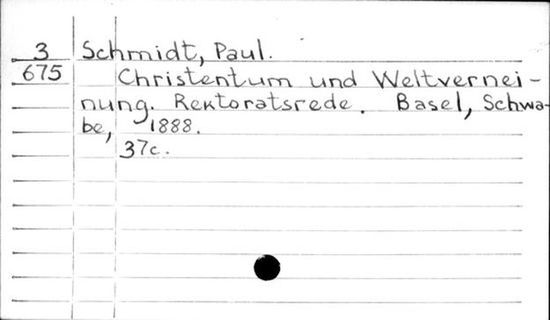 3 Schmidt, Paul.
675 Christentum und Weltvernei-
nung. Rektoratsrede. Basel, Schwa-
be, 1888.
37c.